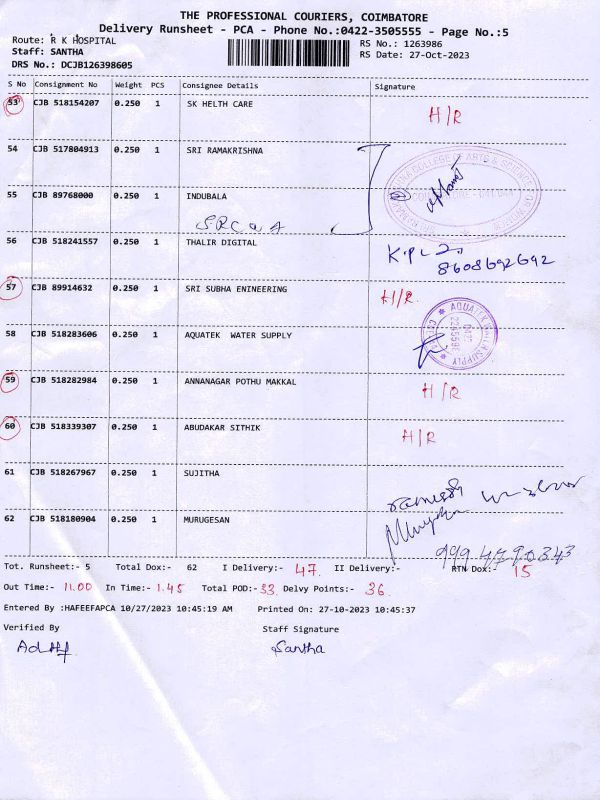 THE PROFESSIONAL COURIERS, COIMBATORE
Delivery Runsheet - PCA - Phone No.:0422-3505555 - Page No.:5
Route: R K HOSPITAL
RS No.: 1263986
Staff: SANTHA
RS Date: 27-Oct-2023
DRS No.: DCJB126398605
S No Consignment No Weight PCS Consignee Details Signature
53 CJB 518154207 0.250 1 SK HELTH CARE H/R
54 CJB 517804913 0.250 1 SRI RAMAKRISHNA
55 CJB 89768000 0.250 1 INDUBALA
56 CJB 518241557 0.250 1 THALIR DIGITAL
8608692692
57 CJB 89914632 0.250 1 SRI SUBHA ENINEERING H/R
58 CJB 518283606 0.250 1 AQUATEK WATER SUPPLY
59 CJB 518282984 0.250 1 ANNANAGAR POTHU MAKKAL H/R
60 CJB 518339307 0.250 1 ABUDAKAR SITHIK H/R
61 CJB 518267967 0.250 1 SUJITHA
62 CJB 518180904 0.250 1 MURUGESAN
9994790343
Tot. Runsheet:- 5 Total Dox:- 62 I Delivery:- 47 II Delivery:- RTN Dox:- 15
Out Time:- 11.00 In Time:- 1.45 Total POD:- 33 Delvy Points:- 36
Entered By :HAFEEFAPCA 10/27/2023 10:45:19 AM Printed On: 27-10-2023 10:45:37
Verified By Staff Signature
Santha